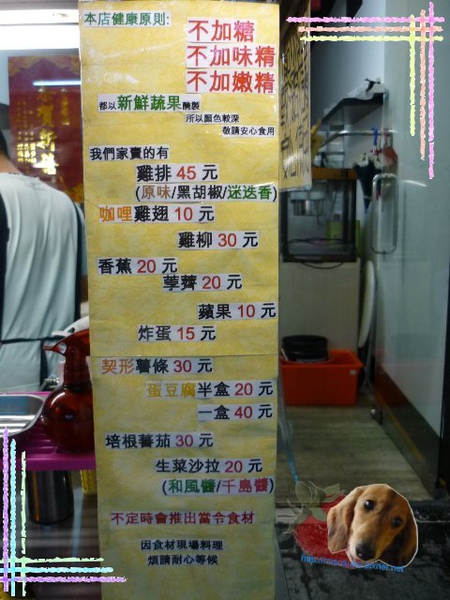 本店健康原則:
不加糖
不加味精
不加嫩精
都以新鮮蔬果醃製
所以顏色較深
敬請安心食用
我們家賣的有
雞排 45 元
(原味/黑胡椒/迷迭香)
咖哩雞翅 10 元
雞柳 30 元
香蕉 20 元
荸薺 20 元
蘋果 10 元
炸蛋 15 元
契形薯條 30 元
蛋豆腐半盒 20 元
一盒 40 元
培根蕃茄 30 元
生菜沙拉 20 元
(和風醬/千島醬)
不定時會推出當令食材
因食材現場料理
煩請耐心等候